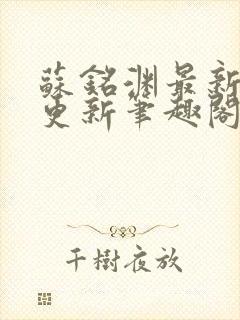 蘇銘渊最新
更新筆趣閣
千樹夜放